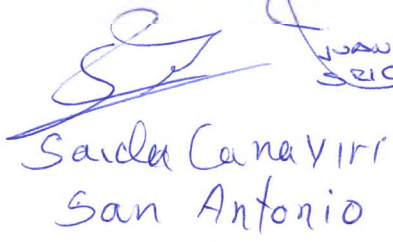 JUAN
Saida Canaviri
San Antonio